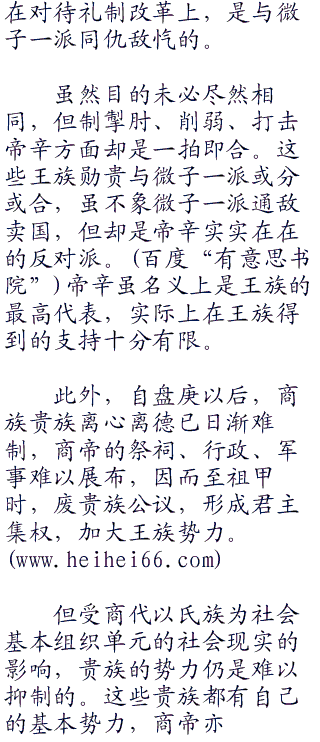 在对待礼制改革上，是与微
子一派同仇敌忾的。
虽然目的未必尽然相
同，但制掣肘、削弱、打击
帝辛方面却是一拍即合。这
些王族勋贵与微子一派或分
或合，虽不象微子一派通敌
卖国，但却是帝辛实实在在
的反对派。(百度“有意思书
院”)帝辛虽名义上是王族的
最高代表，实际上在王族得
到的支持十分有限。
此外，自盘庚以后，商
族贵族离心离德已日渐难
制，商帝的祭祠、行政、军
事难以展布，因而至祖甲
时，废贵族公议，形成君主
集权，加大王族势力。
(www.heihei66.com)
但受商代以氏族为社会
基本组织单元的社会现实的
影响，贵族的势力仍是难以
抑制的。这些贵族都有自己
的基本势力，商帝亦